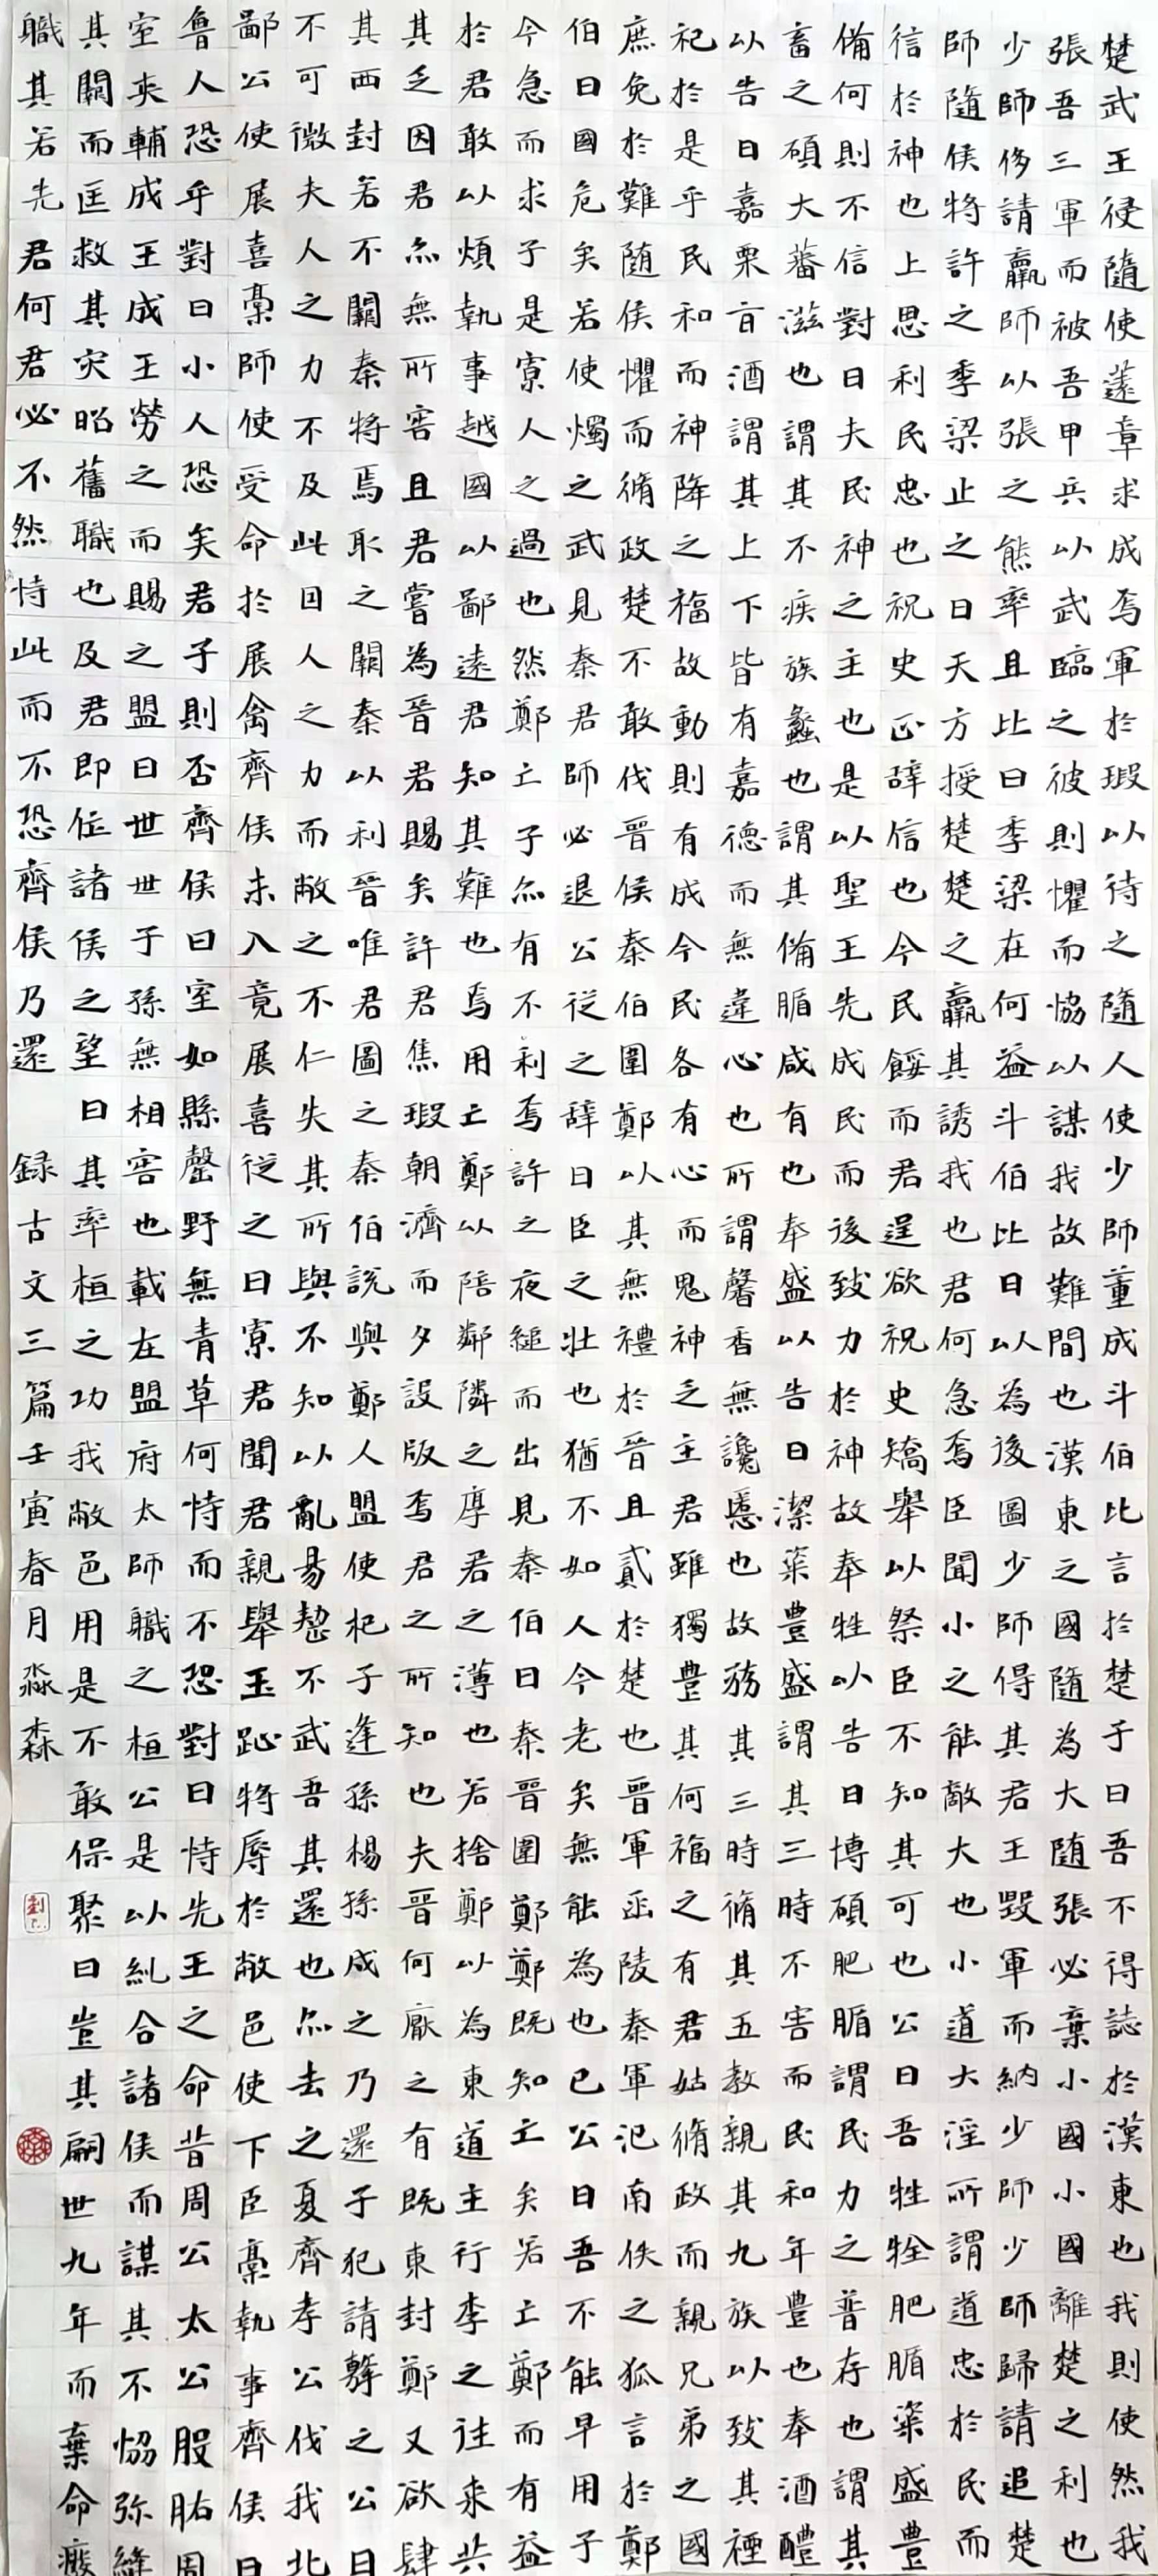 楚武王侵隨使薳章求成焉軍於瑕以待之隨人使少師董成斗伯比言於楚于曰吾不得誌於漢東也我則使然我
張吾三軍而被吾甲兵以武臨之彼則懼而協以謀我故難間也漢東之國隨為大随張必棄小國小國離楚之利也
少師侈請羸師以張之熊率且比曰季梁在何益斗伯比曰以為後圖少師得其君王毀軍而納少師少師歸請追楚
師隨侯將許之季梁止之曰天方授楚楚之羸其誘我也君何急焉臣聞小之能敵大也小道大淫所謂道忠於民而
信於神也上思利民忠也祝史正辭信也今民餒而君逞欲祝史矯舉以祭臣不知其可也公曰吾牲牷肥腯粢盛豐
備何則不信對曰夫民神之主也是以聖王先成民而後致力於神故奉牲以告曰博碩肥腯謂民力之普存也謂其
畜之碩大蕃滋也謂其不疾族蠡也謂其備腯咸有也奉盛以告曰潔粢豐盛謂其三時不害而民和年豐也奉酒醴
以告曰嘉栗旨酒謂其上下皆有嘉德而無違心也所謂馨香無讒慝也故務其三時脩其五教親其九族以致其禋
祀於是乎民和而神降之福故動則有成今民各有心而鬼神乏主君雖獨豐其何福之有君姑脩政而親兄弟之國
庶免於難随侯懼而脩政楚不敢伐晉侯秦伯圍鄭以其無禮於晉且貳於楚也晉軍函陵秦軍氾南佚之狐言於鄭
伯曰國危矣若使燭之武見秦君師必退公從之辭曰臣之壯也猶不如人今老矣無能為也已公曰吾不能早用子
今急而求子是寡人之過也然鄭亡子亦有不利焉許之夜縋而出見秦伯曰秦晉圍鄭鄭既知亡矣若亡鄭而有益
於君敢以煩執事越國以鄙遠君知其難也焉用亡鄭以陪鄰隣之厚君之薄也若捨鄭以為東道主行李之往來共
其乏因君亦無所害且君嘗為晉君賜矣許君焦瑕朝濟而夕設版焉君之所知也夫晉何厭之有既東封鄭又欲肆
其西封若不闕秦將焉取之闕秦以利晉唯君圖之秦伯說與鄭人盟使杞子逢孫楊孫戍之乃還子犯請擊之公曰
不可微夫人之力不及此因人之力而敝之不仁失其所與不知以亂易整不武吾其還也亦去之夏齊孝公伐我北
鄙公使展喜稾師使受命於展禽齊侯未入竟展喜從之曰寡君聞君親舉玉趾將辱於敝邑使下臣稾執事齊侯曰
魯人恐乎對曰小人恐矣君子則否齊侯曰室如縣罄野無青草何恃而不恐對曰恃先王之命昔周公太公股肱周
室夾輔成王成王勞之而賜之盟曰世世子孫無相害也載在盟府太師職之桓公是以糾合諸侯而謀其不協弥縫
其闕而匡救其灾昭舊職也及君即位諸侯之望曰其率桓之功我敝邑用是不敢保聚曰豈其嗣世九年而棄命廢
職其若先君何君必不然恃此而不恐齊侯乃還 録古文三篇壬寅春月淼森